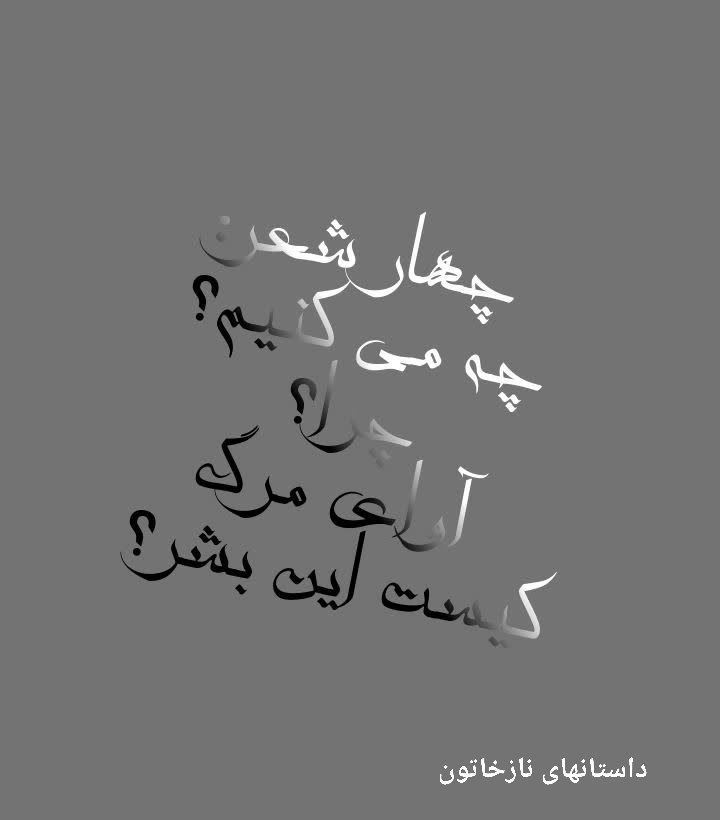 چهار شعر
چه می کنیم؟
چرا؟
آوای مرگ
کیست این بشر؟
داستانهای نازخاتون